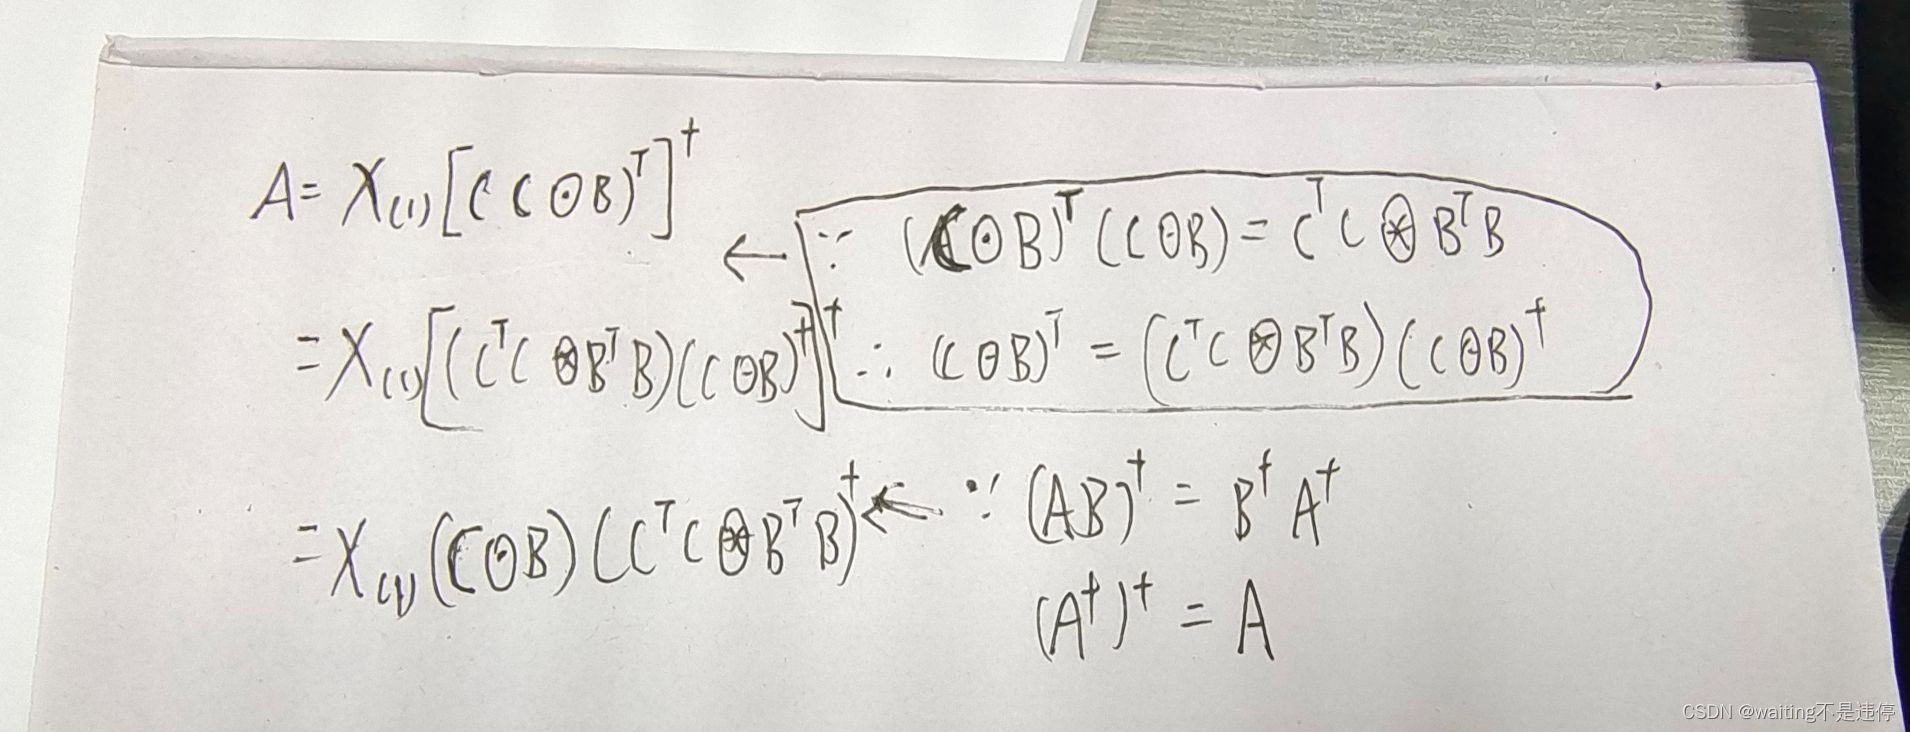 A = X₍₁₎[(C⊙B)ᵀ]†
∵ (C⊙B)ᵀ(C⊙B) = CᵀC⊛BᵀB
←
= X₍₁₎[(CᵀC⊛BᵀB)(C⊙B)†]†
∴ (C⊙B)ᵀ = (CᵀC⊛BᵀB)(C⊙B)†
= X₍₁₎(C⊙B)(CᵀC⊛BᵀB)† ← ∵ (AB)† = B†A†
(A†)† = A
CSDN @waiting不是违停